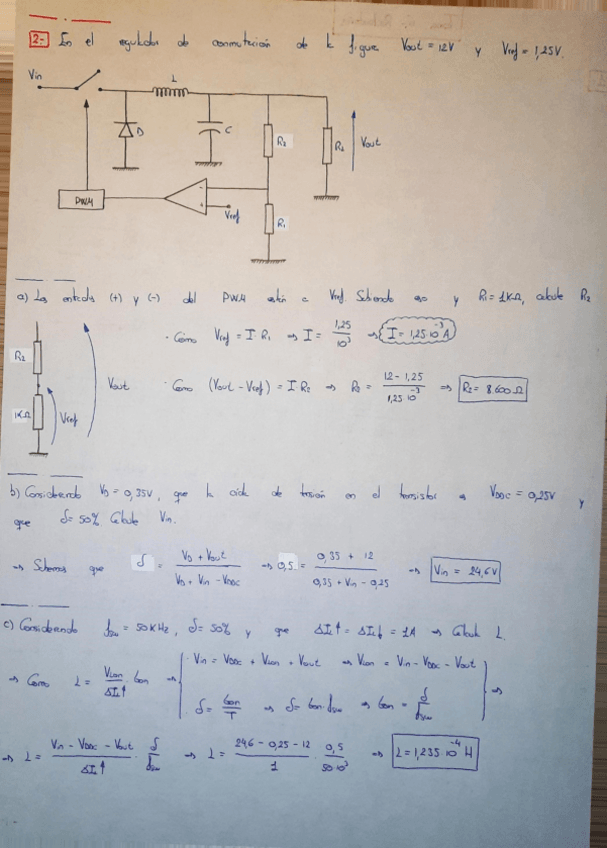 2.- En el regulador de conmutación de la figura Vout = 12V y Vref = 1,25V.
Vin
L
D
C
R2
RL
Vout
PWM
-
+
Vref
R1
a) Las entradas (+) y (-) del PWM están a Vref. Sabiendo eso y R1 = 1KΩ, calcule R2
· Como Vref = I R1 ⇒ I = 1,25 / 10³ ⇒ I = 1,25·10⁻³ A
R2
1KΩ
Vref
Vout
· Como (Vout - Vref) = I R2 ⇒ R2 = 12 - 1,25 / 1,25·10⁻³ ⇒ R2 = 8.600 Ω
b) Considerando VD = 0,35V, que la caída de tensión en el transistor es VDDC = 0,25V y
que δ = 50%. Calcule Vin.
⇒ Sabemos que δ = VD + Vout / VD + Vin - VDDC ⇒ 0,5 = 0,35 + 12 / 0,35 + Vin - 0,25 ⇒ Vin = 24,6 V
c) Considerando fsw = 50KHz, δ = 50% y que ΔIL↑ = ΔIL↓ = 1A ⇒ Calcule L.
⇒ Como L = VLon / ΔIL↑ · ton ⇒
Vin = VDDC + VLon + Vout ⇒ VLon = Vin - VDDC - Vout
δ = ton / T ⇒ δ = ton · fsw ⇒ ton = δ / fsw
⇒
⇒ L = Vin - VDDC - Vout / ΔIL↑ · δ / fsw ⇒ L = 24,6 - 0,25 - 12 / 1 · 0,5 / 50·10³ ⇒ L = 1,235·10⁻⁴ H